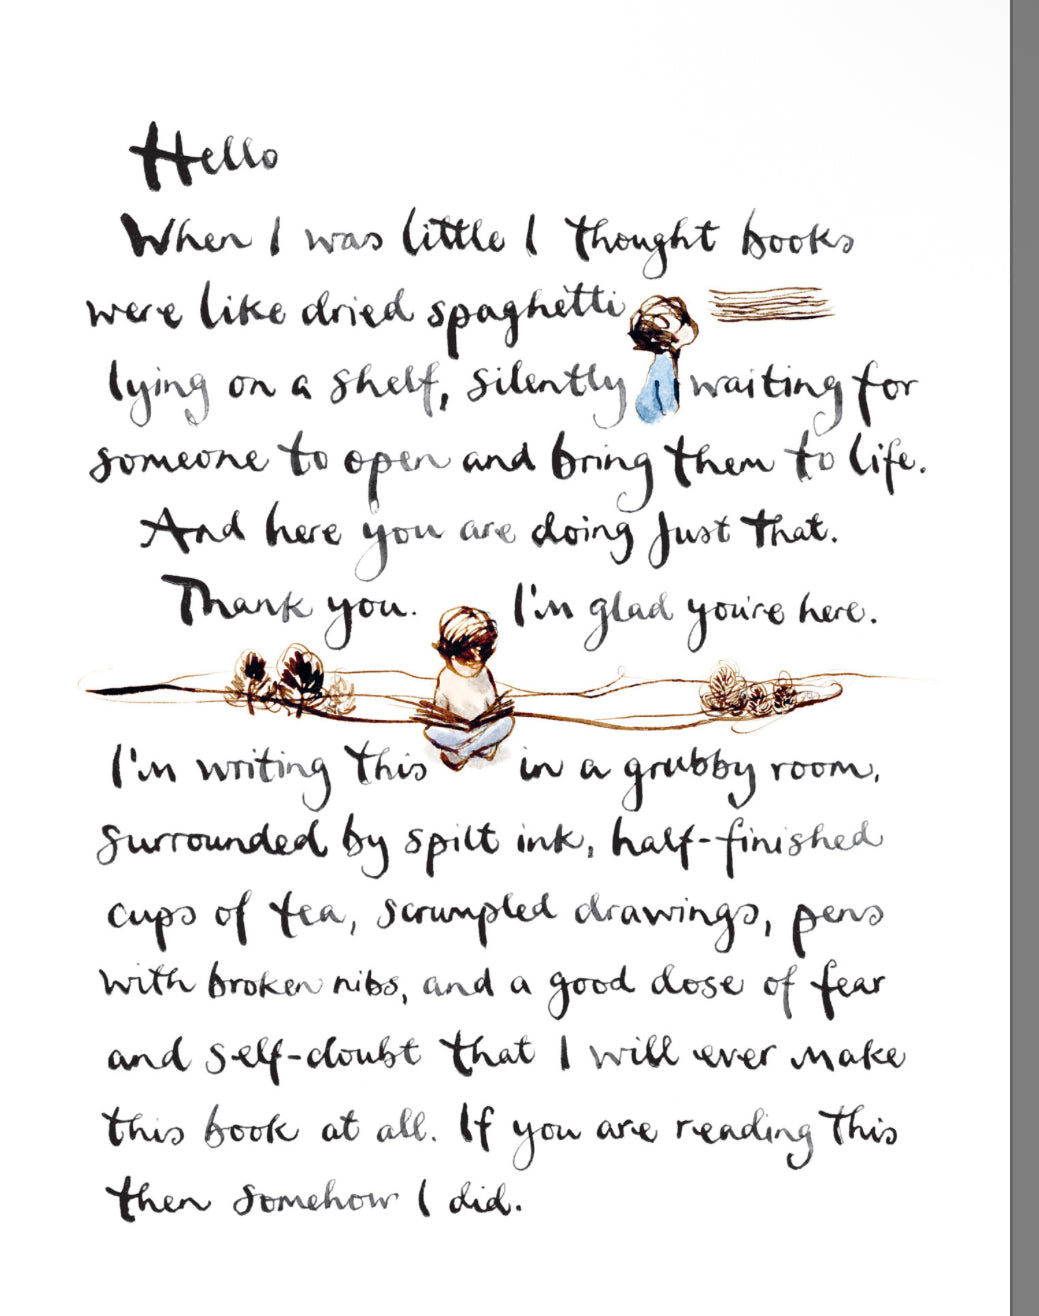 Hello
When I was little I thought books
were like dried spaghetti
lying on a shelf, silently waiting for
someone to open and bring them to life.
And here you are doing just that.
Thank you. I'm glad you're here.
I'm writing this in a grubby room,
surrounded by spilt ink, half-finished
cups of tea, scrumpled drawings, pens
with broken nibs, and a good dose of fear
and self-doubt that I will ever make
this book at all. If you are reading this
then somehow I did.